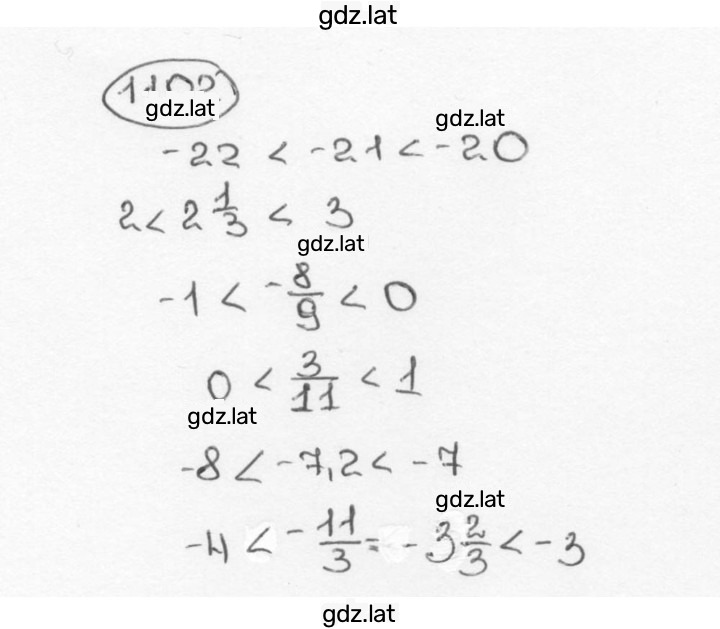 gdz.lat
gdz.lat
gdz.lat
-22 < -21 < -20
2 < 2 1/3 < 3
gdz.lat
-1 < -8/9 < 0
0 < 3/11 < 1
gdz.lat
-8 < -7,2 < -7
gdz.lat
-4 < -11/3 = -3 2/3 < -3
gdz.lat